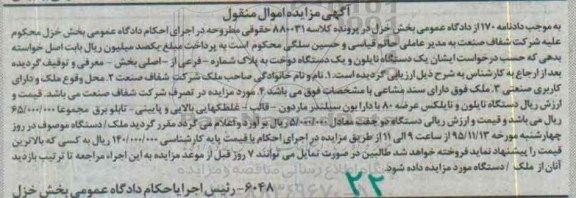 آگهی مزایده اموال منقول
به موجب دادنامه ۱۷۰ از دادگاه عمومی بخش خزل در پرونده کلاسه ۸۸۰۰۳۱ حقوقی مطروحه در اجرای احکام دادگاه عمومی بخش خزل محکوم
علیه شرکت شفاف صنعت به مدیر عاملی حاتم قیاسی و حسین سلگی محکوم است به پرداخت مبلغ یکصد میلیون ریال بابت اصل خواسته
بدهی که حسب درخواست ایشان یک دستگاه نایلون و یک دستگاه دوخت به پلاک شماره - فرعی از - اصلی بخش - معرفی و توقیف گردیده
بعد از ارجاع به کارشناس به شرح ذیل ارزیابی گردیده است: ۱. نام و نام خانوادگی صاحب ملک شرکت شفاف صنعت ۲. محل وقوع ملک و دارای
کاربری صنعتی ۳. ملک فوق دارای سند مشاعی با مشخصات فوق می باشد ۴. مورد مزایده در تصرف شرکت شفاف صنعت می باشد. قیمت و
ارزش ریال دستگاه نایلون و نایلکس عرضه ۸۰ با دارا یون سیلندر ماردون - قالب - غلطکهایی بالایی و پایینی - تابلو برق مجموعا ۶۵/۰۰۰/۰۰۰
ریال می باشد و قیمت و ارزش ریالی دستگاه دوخت معادل ۷۵/۰۰۰/۰۰۰ ریال برآورد و اعلام می گردد مقرر گردید ملک/دستگاه موصوف در روز
چهارشنبه مورخه ۹۵/۱۱/۱۳ از ساعت ۹ الی ۱۱ از طریق مزایده در اجرای احکام با قیمت پایه کارشناسی ۱۴۰/۰۰۰/۰۰۰ ریال به کسی که بالاترین
قیمت را پیشنهاد نماید فروخته خواهد شد طالبین در صورت تمایل می توانند ۷ روز قبل از موعد مزایده به این اجراء مراجعه تا ترتیب بازدید
آنان از ملک / دستگاه مورد مزایده داده شود.
۶۰۴۸- رئیس اجرا یاحکام دادگاه عمومی بخش خزل
۲۲